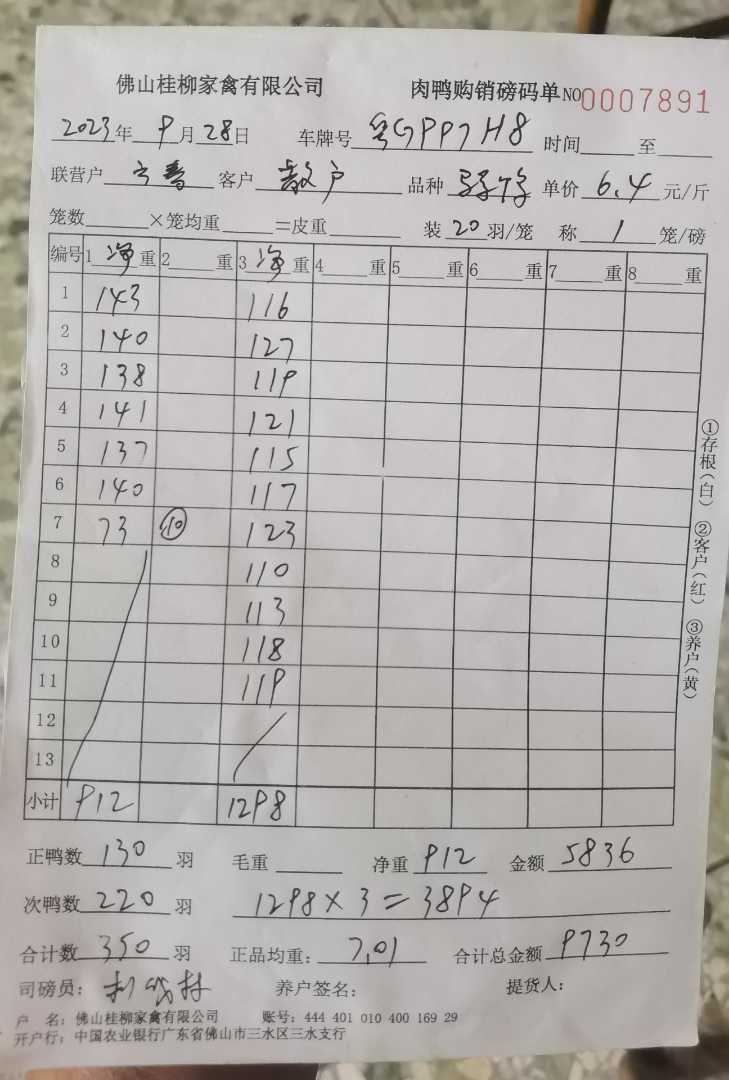 佛山桂柳家禽有限公司 肉鸭购销磅码单 NO0007891
2023年9月28日 车牌号 粤GPP7H8 时间 至
联营户 客户 散户 品种 单价 6.4 元/斤
笼数 ×笼均重 =皮重 装 20 羽/笼 称 1 笼/磅
编号 1 净 重 2 重 3 净 重 4 重 5 重 6 重 7 重 8 重
1 143 116
2 140 127
3 138 119
4 141 121
5 137 115
6 140 117
7 73 ⑩ 123
8 110
9 113
10 118
11 119
12
13
小计 912 1298
正鸭数 130 羽 毛重 净重 912 金额 5836
次鸭数 220 羽 1298×3=3894
合计数 350 羽 正品均重: 7.01 合计总金额 9730
司磅员: 养户签名: 提货人:
户 名: 佛山桂柳家禽有限公司 账号: 444 401 010 400 169 29
开户行: 中国农业银行广东省佛山市三水区三水支行
①存根(白) ②客户(红) ③养户(黄)